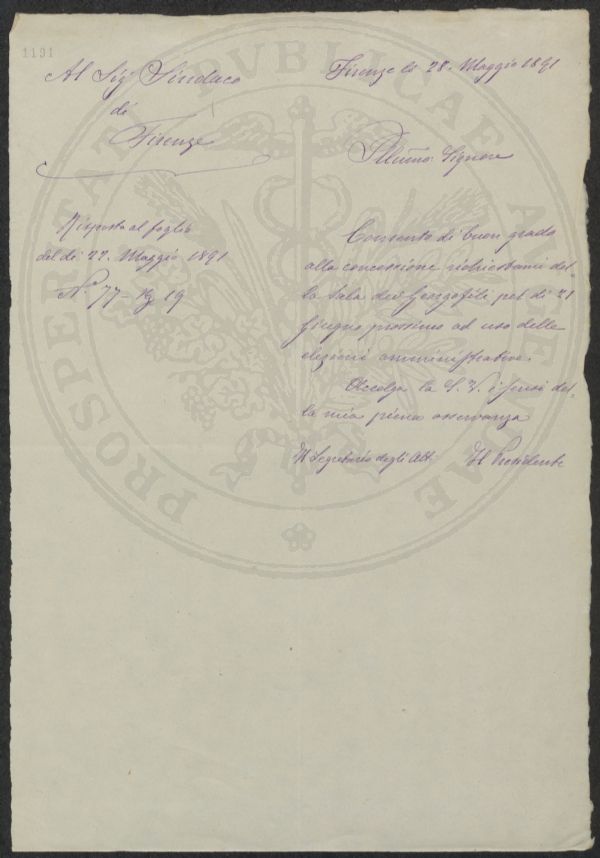 1191
Al Sig. Sindaco
di
Firenze
Firenze li 28. Maggio 1891
Illumo: Signore
Risposta al foglio
del dì 27. Maggio 1891
N.° 77 - 19
Consento di buon grado
alla concessione richiestami del-
la Sala dei Georgofili pel dì 21
Giugno prossimo ad uso delle
elezioni amministrative.
Accolga la S. V. i sensi del-
la mia piena osservanza
Il Segretario degli Atti Il Presidente
PROSPERITATI PVBLICAE AVGENDAE